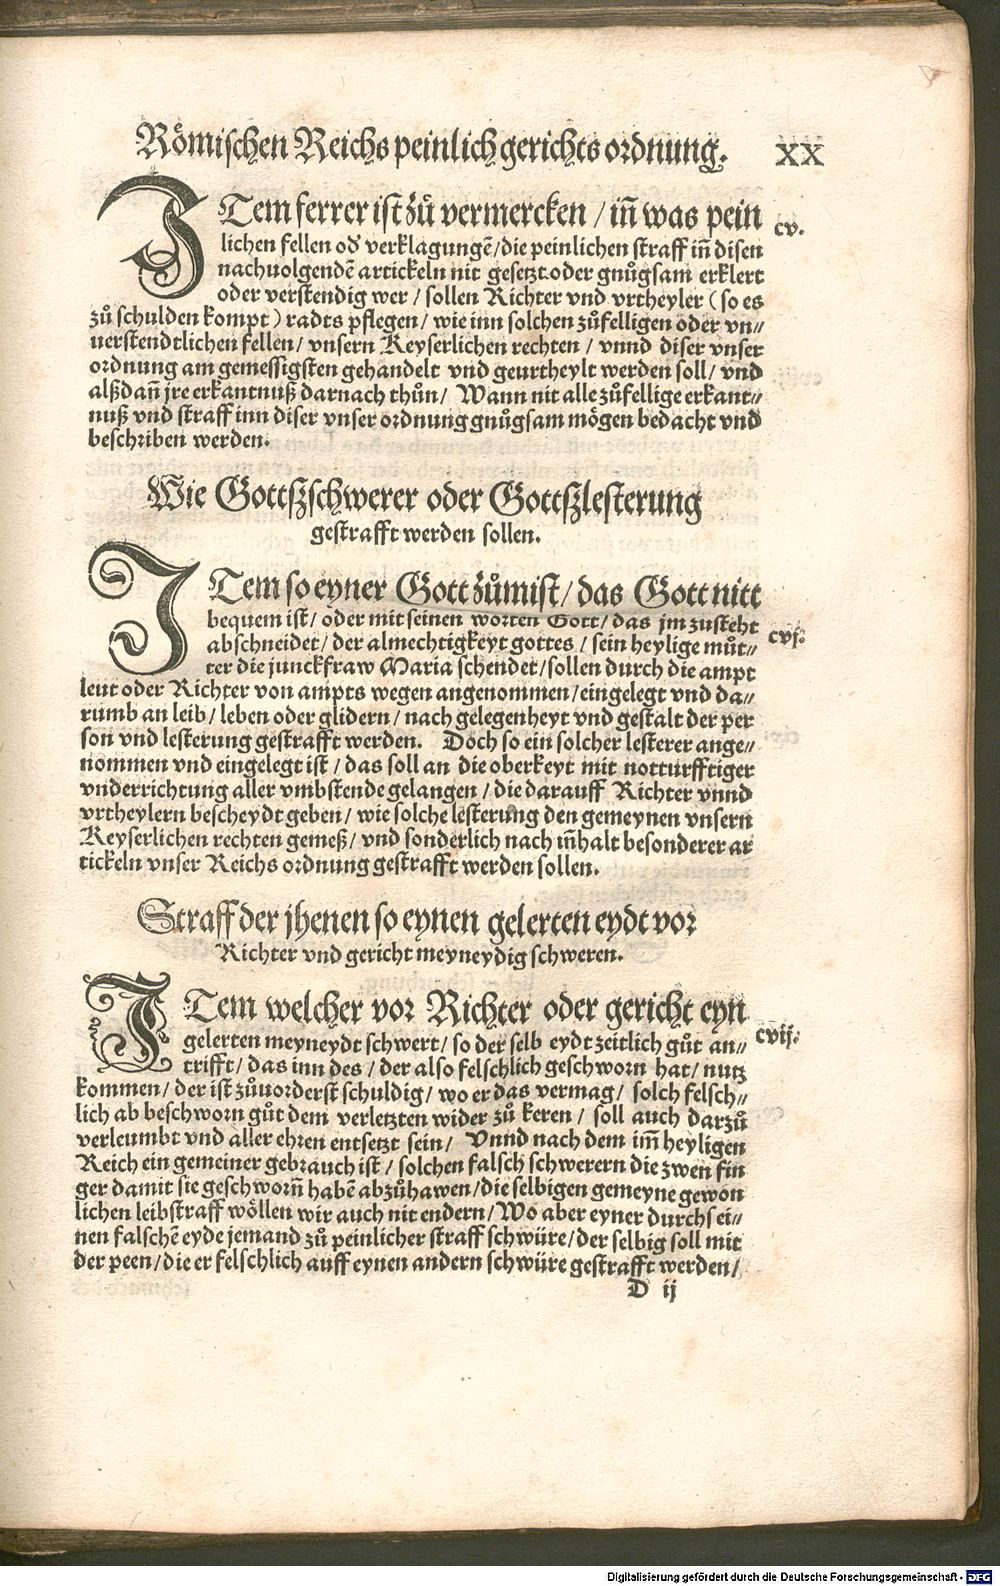 Römischen Reichs peinlich gerichts ordnung. XX
ITem ferrer ist zů vermercken / iñ was pein
cv.
lichen fellen oď verklagungē / die peinlichen straff iñ disen
nachuolgendē artickeln nit gesetzt oder gnůgsam erklert
oder verstendig wer / sollen Richter vnd vrtheyler ( so es
zů schulden kompt ) radts pflegen / wie inn solchen zůfelligen oder vn//
uerstendtlichen fellen / vnsern Keyserlichen rechten / vnnd diser vnser
ordnung am gemessigsten gehandelt vnd geurtheylt werden soll / vnd
alßdañ jre erkantnuß darnach thůn / Wann nit alle zůfellige erkant//
nuß vnd straff inn diser vnser ordnung gnůgsam mögen bedacht vnd
beschriben werden.
Wie Gottßschwerer oder Gottßlesterung
gestrafft werden sollen.
ITem so eyner Gott zůmist / das Gott nitt
bequem ist / oder mit seinen worten Gott / das jm zusteht
cvj.
abschneidet / der almechtigkeyt gottes / sein heylige můt//
ter die junckfraw Maria schendet / sollen durch die ampt
leut oder Richter von ampts wegen angenommen / eingelegt vnd da//
rumb an leib / leben oder glidern / nach gelegenheyt vnd gestalt der per
son vnd lesterung gestrafft werden. Doch so ein solcher lesterer ange//
nommen vnd eingelegt ist / das soll an die oberkeyt mit notturfftiger
vnderrichtung aller vmbstende gelangen / die darauff Richter vnnd
vrtheylern bescheydt geben / wie solche lesterung den gemeynen vnsern
Keyserlichen rechten gemeß / vnd sonderlich nach iñhalt besonderer ar
tickeln vnser Reichs ordnung gestrafft werden sollen.
Straff der jhenen so eynen gelerten eydt vor
Richter vnd gericht meyneydig schweren.
ITem welcher vor Richter oder gericht eyn
gelerten meyneydt schwert / so der selb eydt zeitlich gůt an//
cvij.
trifft / das inn des / der also felschlich geschworn hat / nutz
kommen / der ist zůuorderst schuldig / wo er das vermag / solch felsch//
lich ab beschworn gůt dem verletzten wider zů keren / soll auch darzů
verleumbt vnd aller ehren entsetzt sein / Vnnd nach dem im̃ heyligen
Reich ein gemeiner gebrauch ist / solchen falsch schwerern die zwen fin
ger damit sie geschworñ habē abzůhawen / die selbigen gemeyne gewon
lichen leibstraff wöllen wir auch nit endern / Wo aber eyner durch sei//
nen falschē eyde jemand zů peinlicher straff schwüre / der selbig soll mit
der peen / die er felschlich auff eynen andern schwüre gestrafft werden /
D ij
Digitalisierung gefördert durch die Deutsche Forschungsgemeinschaft - DFG